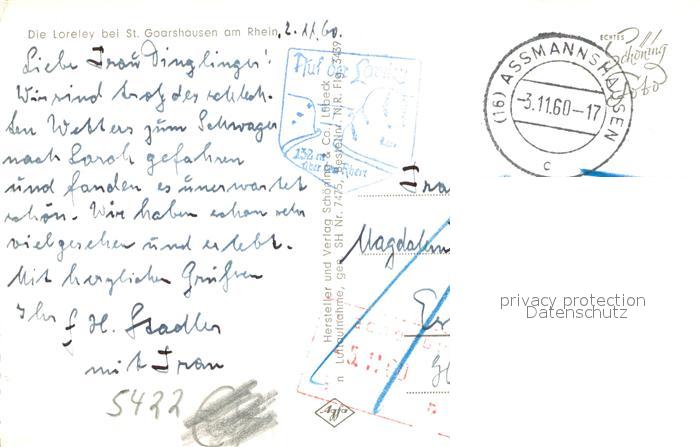 Die Loreley bei St. Goarshausen am Rhein, 2.11.60.
Liebe Frau Dinglinger!
Wir sind trotz des schlech-
ten Wetters zum Schwager
nach Lorch gefahren
und fanden es unerwartet
schön. Wir haben schon sehr
viel gesehen und erlebt.
Mit herzlichen Grüßen
Ihr H. Stadler
mit Frau
5422
Auf der Loreley
132 m
über dem Rhein
Hersteller und Verlag Schöning & Co., Lübeck
Luftaufnahme, gen. SH Nr. 7475, Bestellnr. N.R. Flg. 3439
Agfa
ECHTES
Schöning
Foto
(16) ASSMANNSHAUSEN
-3.11.60-17
c
Fra
Magdalen
privacy protection
Datenschutz